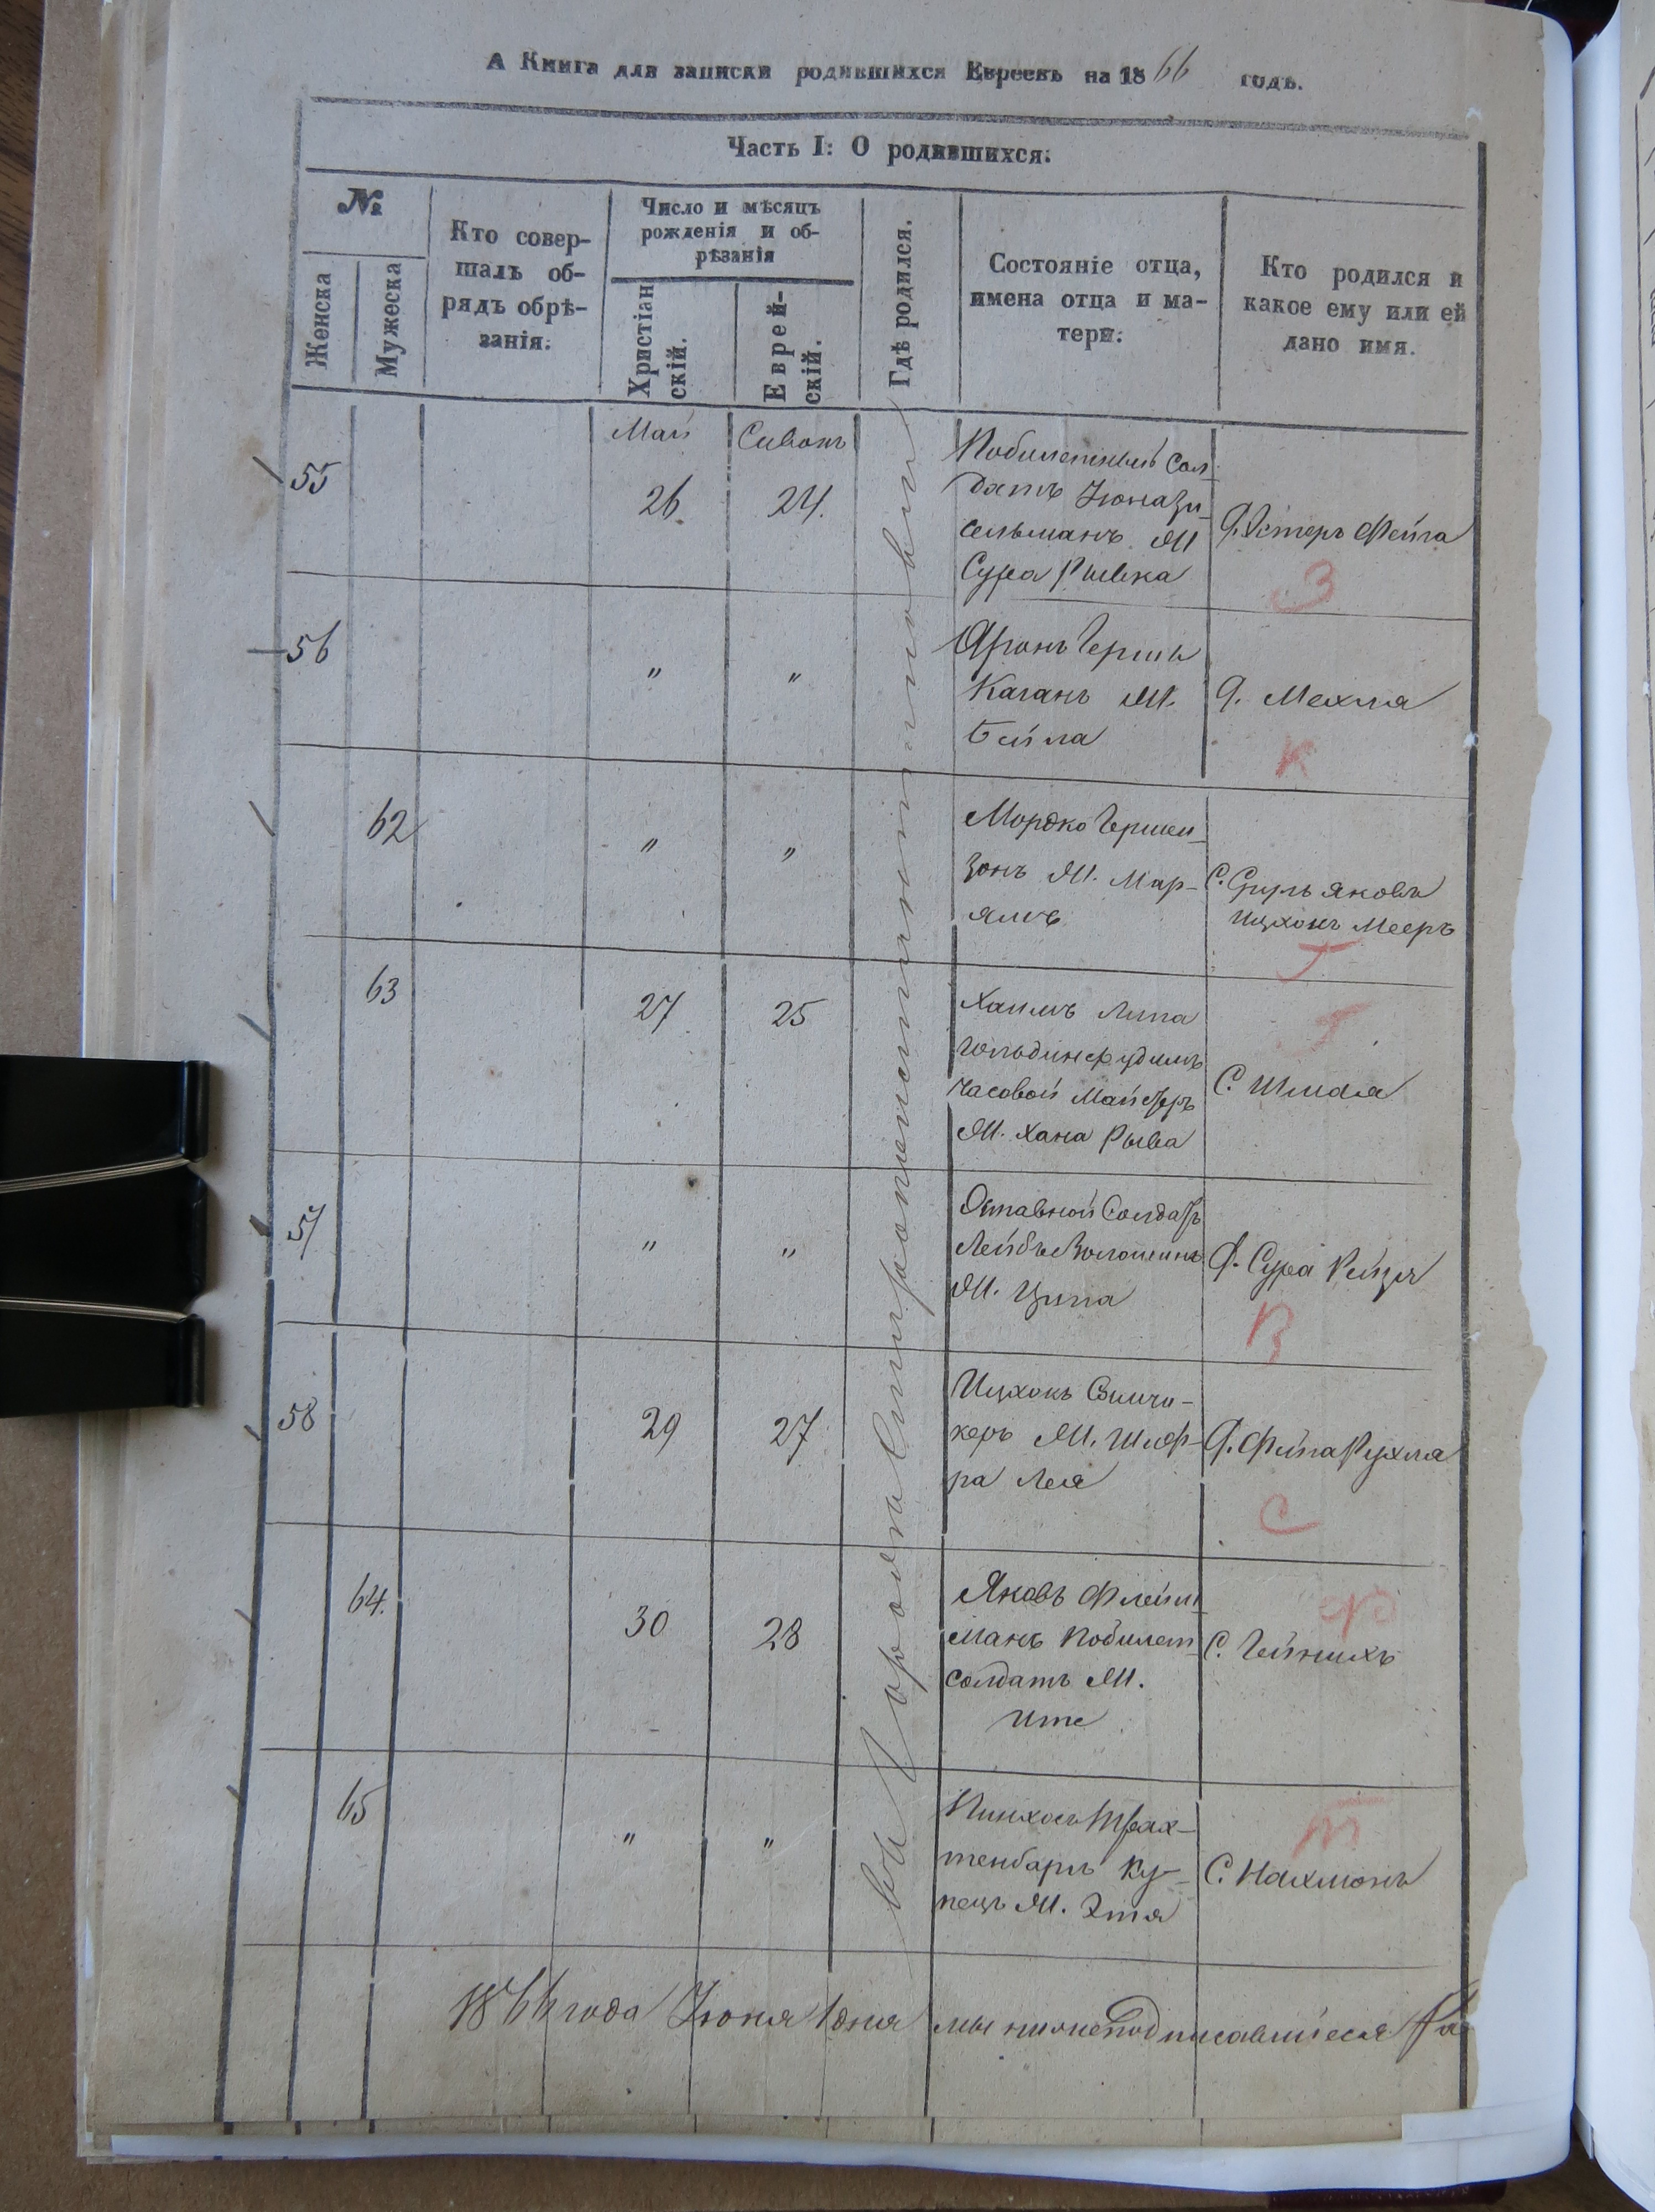 А Книга для записки родившихся Евреевъ на 1866 годъ.
Часть I: О родившихся.
№
Женска
Мужеска
Кто совер-
шалъ об-
рядъ обрѣ-
занія.
Число и мѣсяцъ
рожденія и об-
рѣзанія
Христіан
скій.
Еврей-
скій.
Гдѣ родился.
Состояніе отца,
имена отца и ма-
тери.
Кто родился и
какое ему или ей
дано имя.
въ Городѣ
Май
Сивонъ
55
26
24.
Побилетный Сол-
датъ
сельманъ М
Сура Рывка
Д. Эстеръ Фейга
З
56
"
"
Аронъ Гершъ
Каганъ М.
Бейла
Д. Мехля
К
62
"
"
Мордко Герше-
зонъ М. Мар-
ямъ
С. Сруль Яковъ
Ицхокъ Мееръ
Г
63
27
25
Хаимъ Липа
часовой Майстеръ
М. Хана Рыва
Г
С. Шмая
57
"
"
Солдатъ
Лейбъ
М. Ципа
Д. Сура Рейзя
В
58
29
27
Ицхокъ
керъ М. Шиф-
ра Лея
Д. Фейга Рухля
С
64.
30
28
Яковъ Флейш-
манъ Побилет
солдатъ М.
Ите
С. Гейнихъ
65
"
"
Пинхосъ Трах-
тенбаръ Ку-
пецъ М. Этя
Т
С. Нахмонъ
1866 года Іюня 1 дня мы нижеподписавшіеся